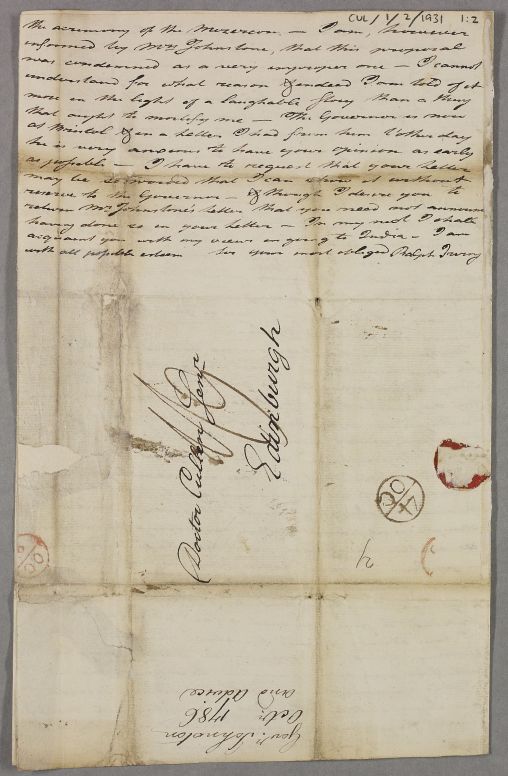 CUL/1/2/1931 1:2
the acrimony of the Mezereon – I am, however
informed by Mrs Johnstone, that this proposal
was condemned as a very improper one – I cannot
understand for what reason & indeed I am told of it
more in the light of a laughable story than a thing
that ought to mortify me – The Governor is now
at Bristol & in a letter I had from him t'other day
he is very anxious to have your opinion as early
as possible – I have to request that your letter
may be so worded that I can show it without
reserve to the Governor – & though I desire you to
return Mrs Johnstone's letter that you need not announce
having done so in your letter – In my next I shall
acquaint you with my views in going to India – I am
with all possible esteem your most obliged Ralph Irving
Doctor Cullen Senr
Edinburgh
OC
24
Govr. Johnston
Octr. 1786
and advice